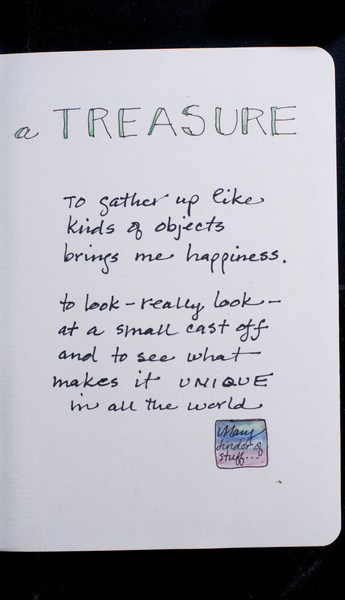 a TREASURE
To gather up like
kinds of objects
brings me happiness.
to look - really look -
at a small cast off
and to see what
makes it UNIQUE
in all the world
Mary
finder of
stuff...